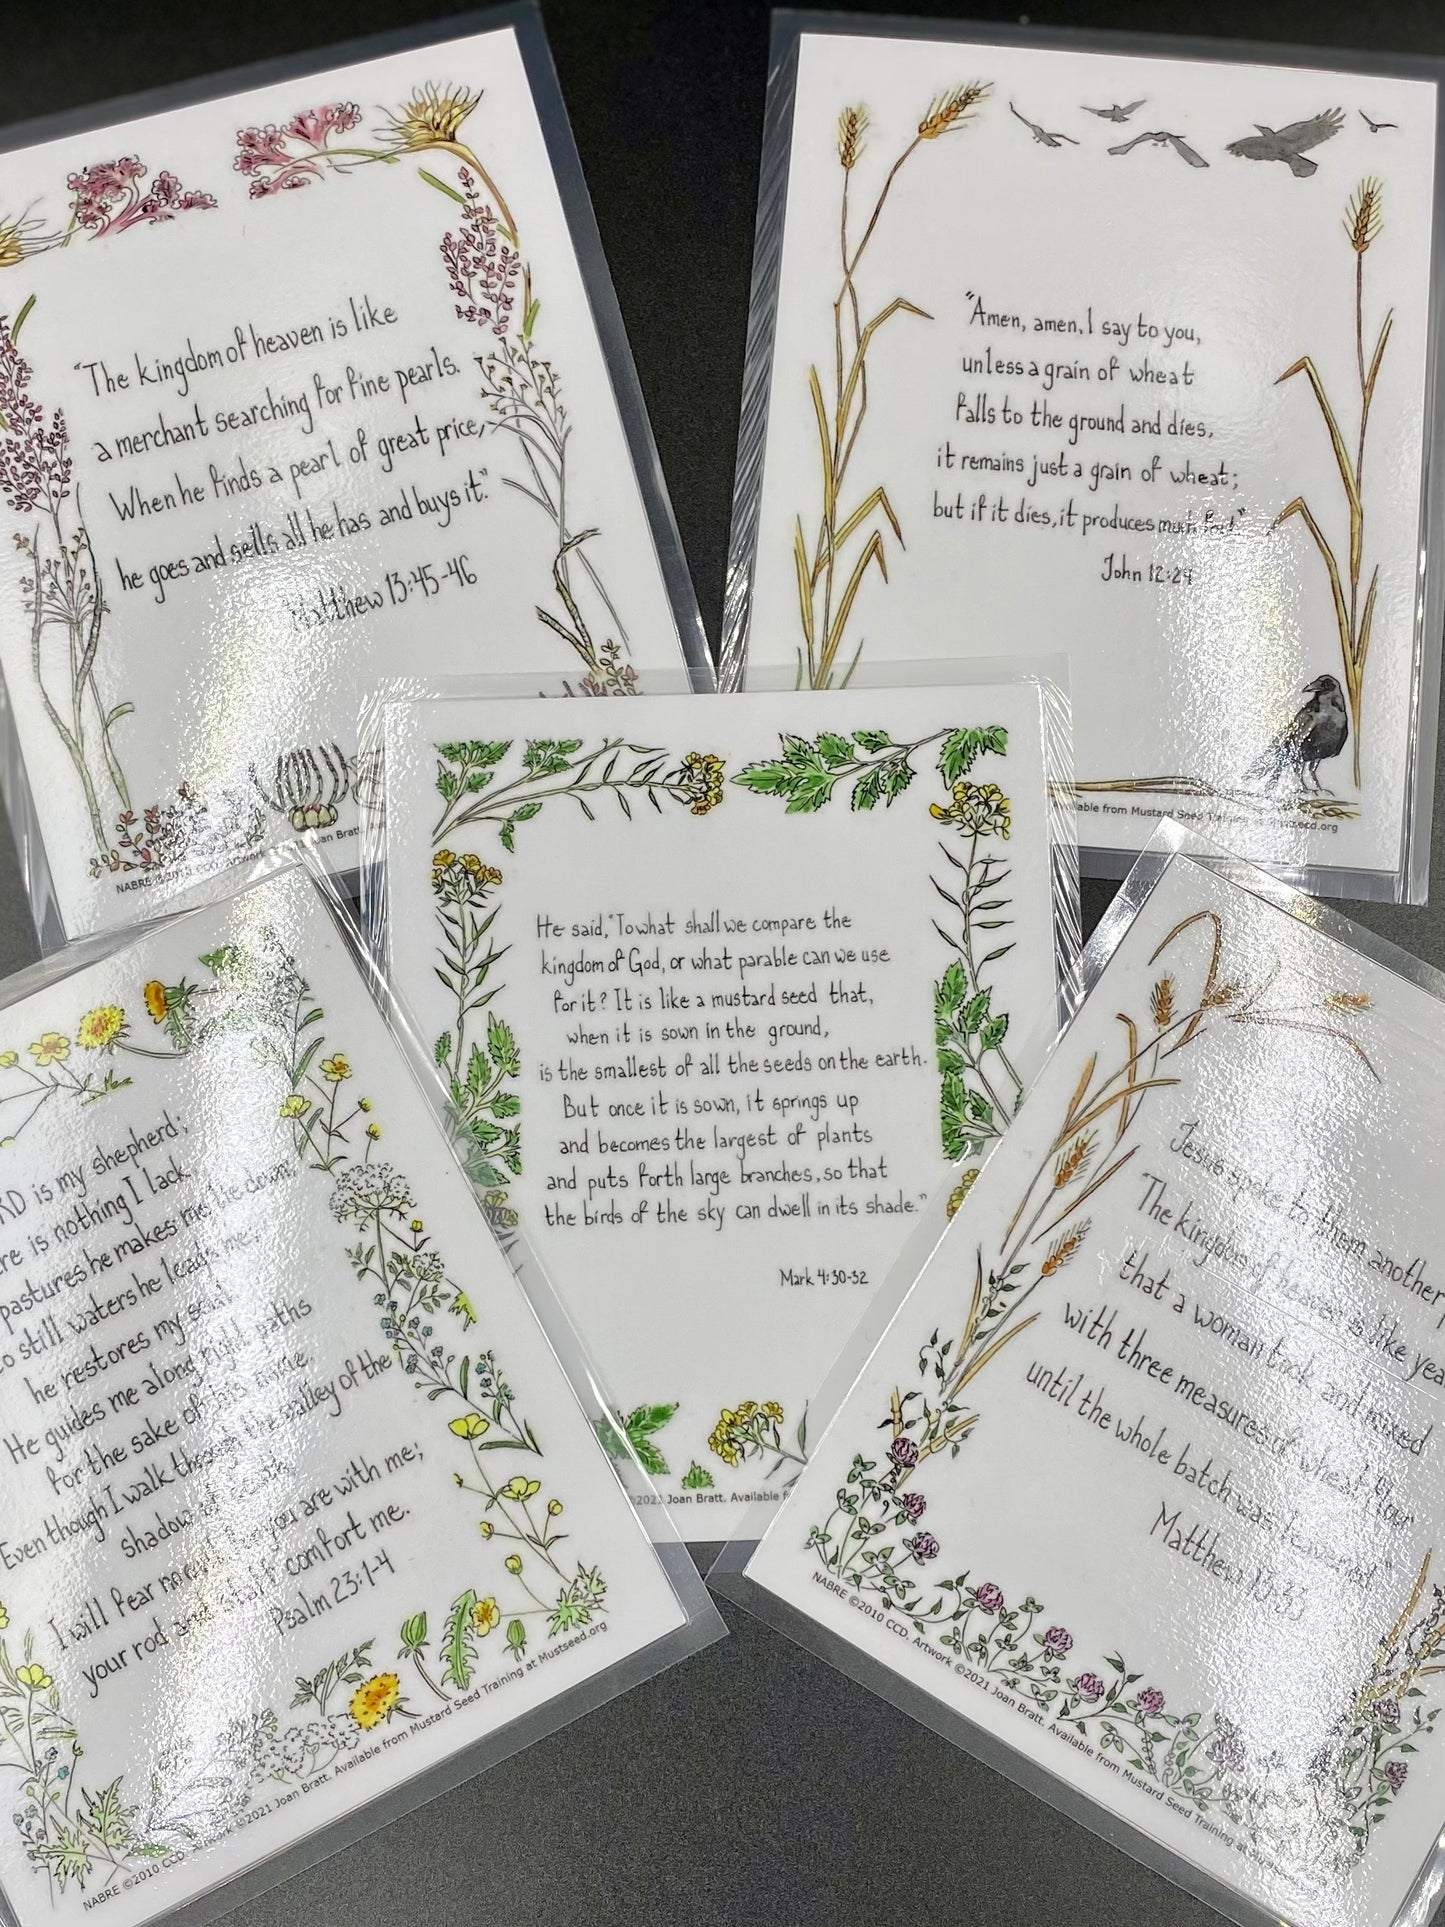 "The kingdom of heaven is like
a merchant searching for fine pearls.
When he finds a pearl of great price,
he goes and sells all he has and buys it."
Matthew 13:45-46
NABRE ©2010 CCD. Artwork Joan Bratt.
"Amen, amen, I say to you,
unless a grain of wheat
falls to the ground and dies,
it remains just a grain of wheat;
but if it dies, it produces much
John 12:24
Available from Mustard Seed Training at Mustseed.org
He said, "To what shall we compare the
kingdom of God, or what parable can we use
for it? It is like a mustard seed that,
when it is sown in the ground,
is the smallest of all the seeds on the earth.
But once it is sown, it springs up
and becomes the largest of plants
and puts forth large branches, so that
the birds of the sky can dwell in its shade."
Mark 4:30-32
©2021 Joan Bratt. Available
RD is my shepherd;
re is nothing I lack.
pastures he makes me lie down;
to still waters he leads me;
he restores my soul.
He guides me along right paths
for the sake of his name.
Even though I walk through the valley of the
shadow of
I will fear no you are with me;
your rod and staff comfort me.
Psalm 23:1-4
NABRE ©2010 CCD. Artwork ©2021 Joan Bratt. Available from Mustard Seed Training at Mustseed.org
Jesus spoke to them another
"The kingdom of heaven is like yea
that a woman took and mixed
with three measures of wheat flour
until the whole batch was leavened."
Matthew 13:33
NABRE ©2010 CCD. Artwork ©2021 Joan Bratt. Available from Mustard Seed Training at